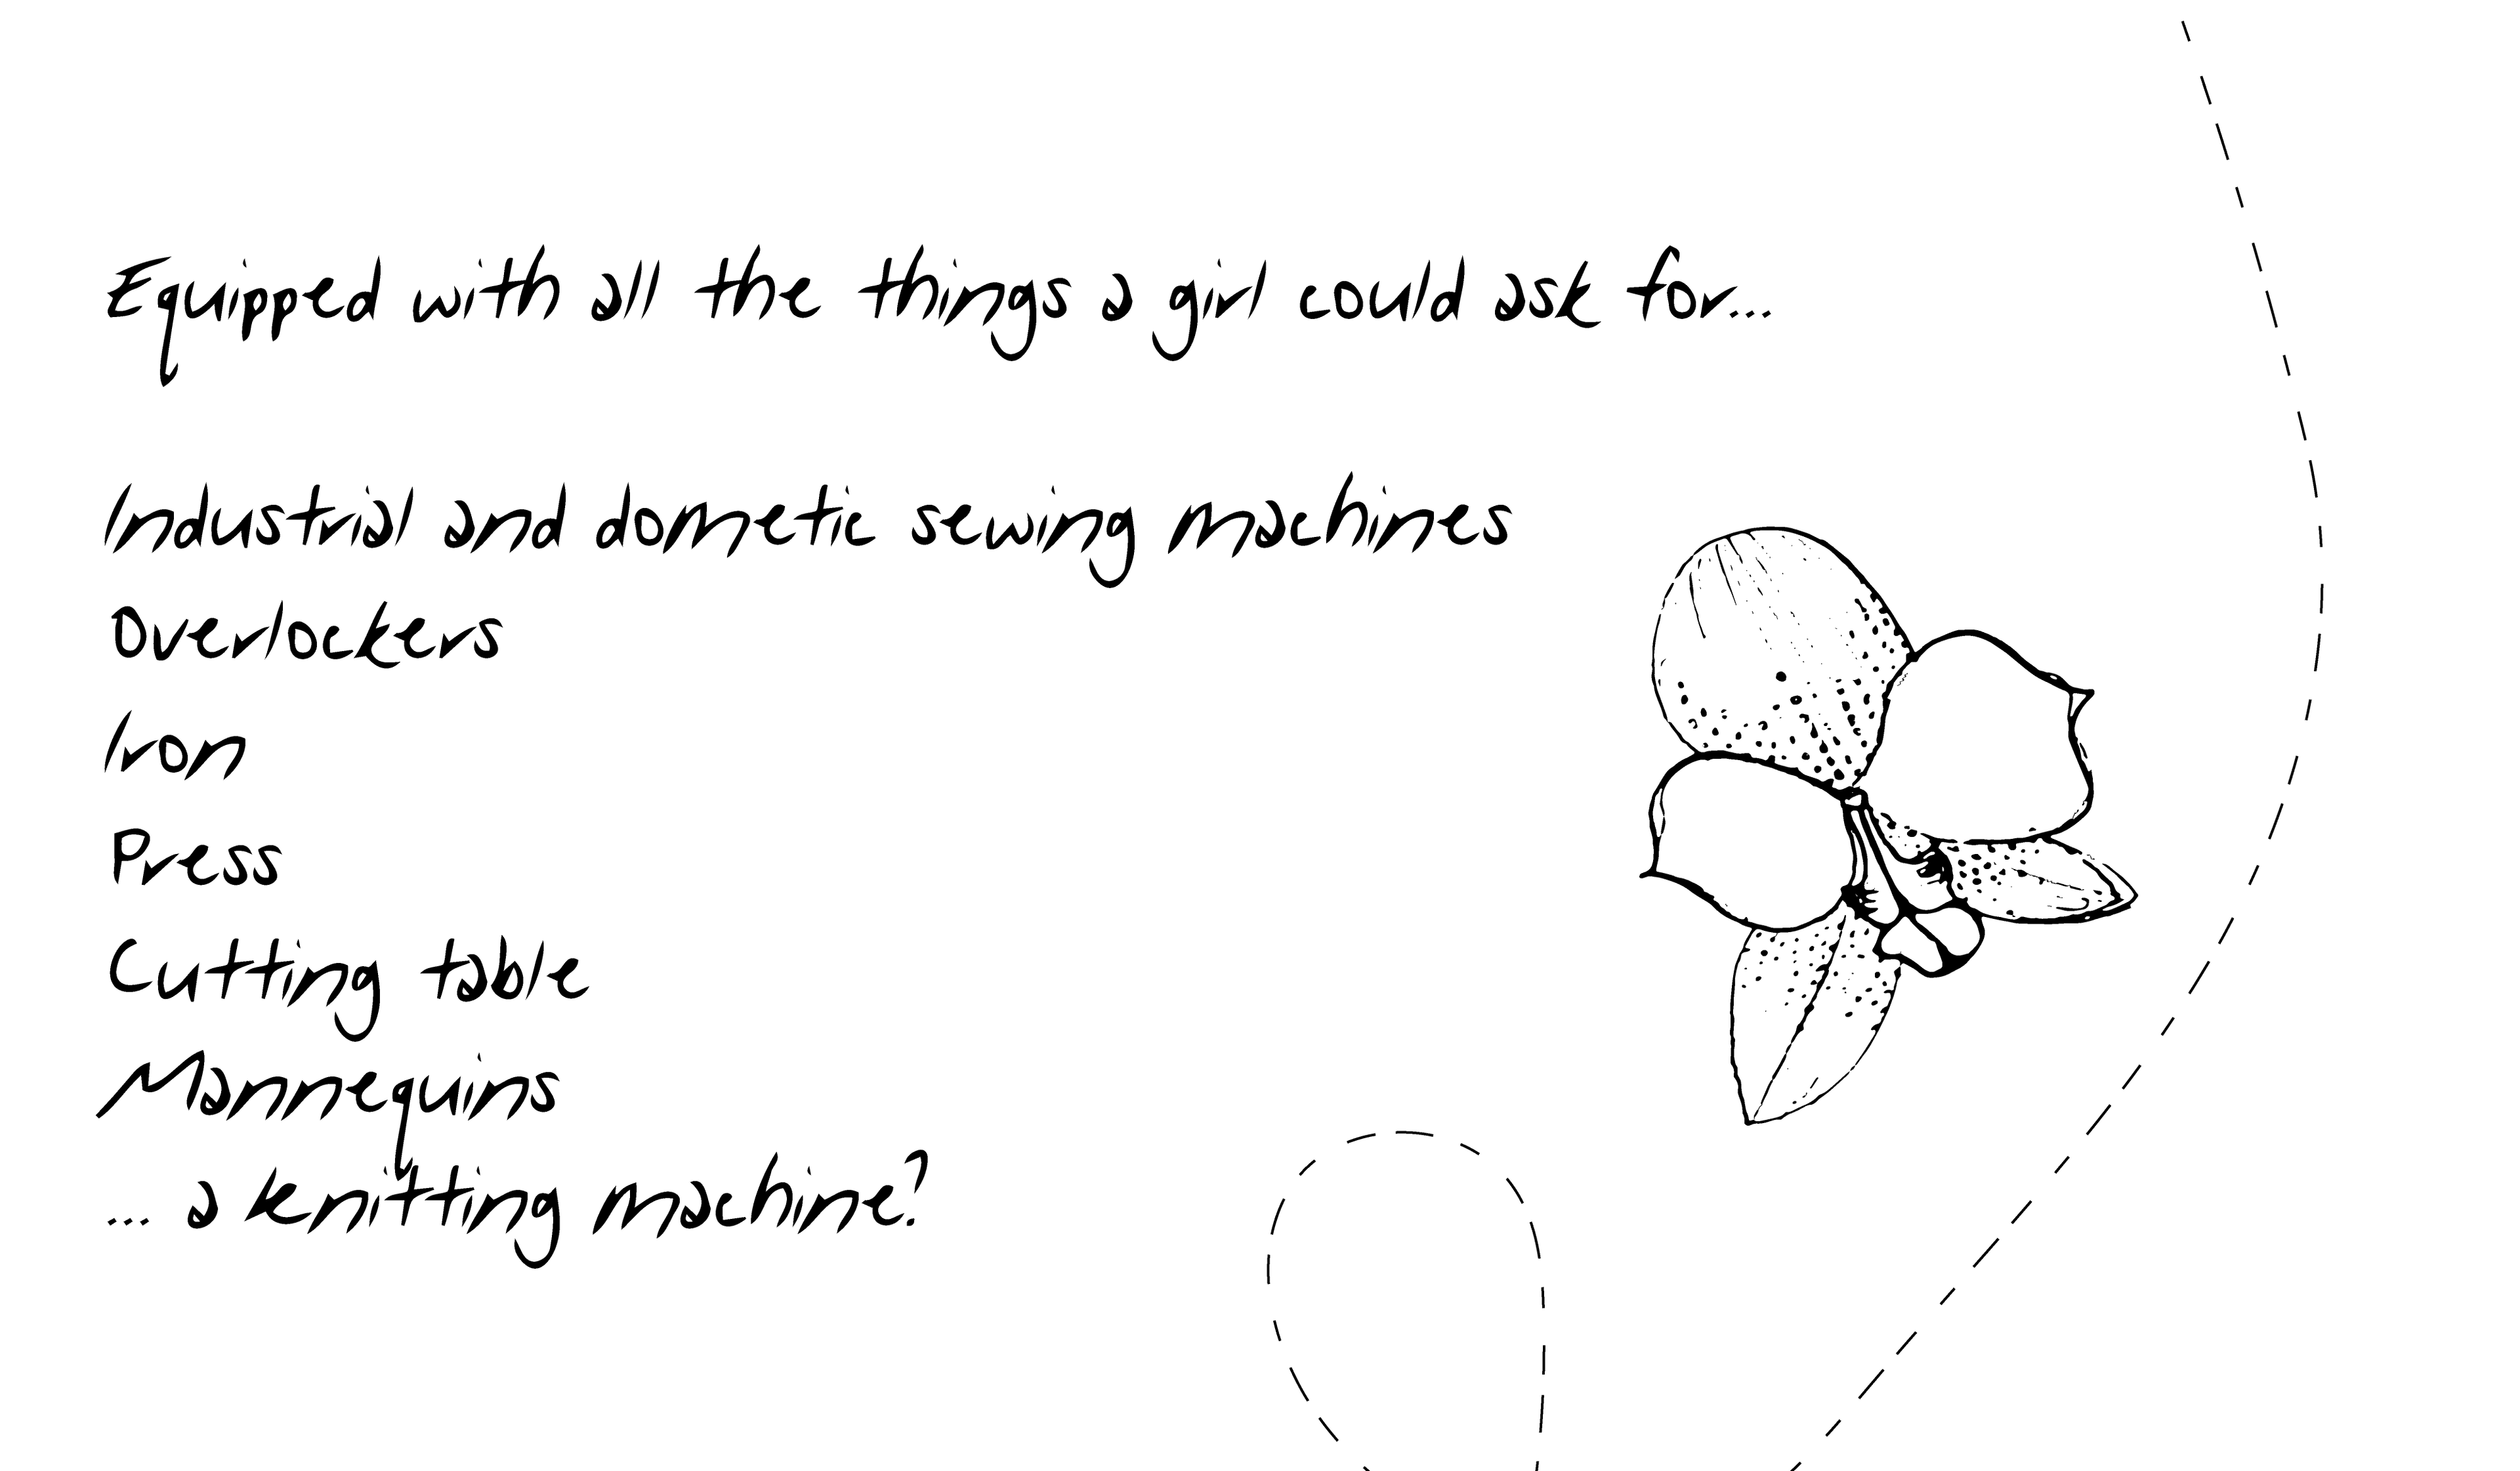 Equipped with all the things a girl could ask for...
Industrial and dometic sewing machines
Overlockers
Iron
Press
Cutting table
Mannequins
... a knitting machine?